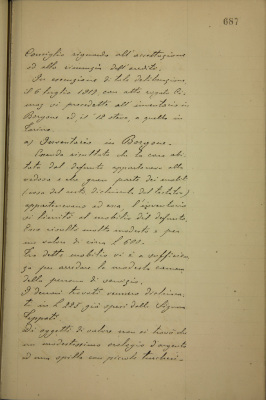 687
Consiglio riguardo all'accettazione
od alla rinunzia dell'eredità.
In esecuzione di tale deliberazione
il 6 luglio 1919 con atto
si procedette all'inventario in
Borgone ed il 12 stesso, a quello in
Torino.
a) Inventario in Borgone.
Essendo risultato che la casa abi-
tata dal defunto apparteneva alla
vedova e che gran parte dei mobili
appartenevano ad essa l'inventario
si limitò al mobilio del defunto.
Esso risultò molto modesto e per
un valore di circa L. 600.
Tra detto mobilio vi è a sufficien-
za per arredare la modesta camera
della persona di servizio.
I denari trovati vennero dichiara-
ti in L. 225 già spesi dalla Signora
Di oggetti di valore non si trovò che
un modestissimo orologio d'argento
ed una spilla con piccole